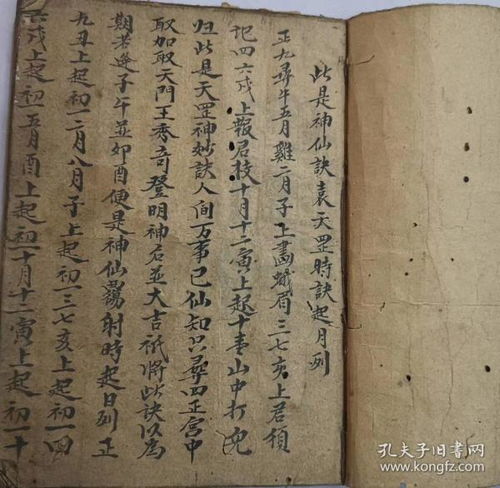 此是神仙訣袁天罡時訣起月列
正九尋午五月雞二月子上畫蛾眉三七亥上君須
記四六戌上報君枝十月十二寅上起十一山中打兔
归此是天罡神妙訣人间万事已仙知只尋四正宮中
取加取天門王秀奇登明神名並大吉祇將此訣以為
期若逢子午並卯酉便是神仙覆射時起日列正
九丑上起初一二月八月子上起初一三七亥上起初一四
六戌上起初一五月酉上起初一十月十二寅上起初一十
孔夫子旧書网
www.kongfz.com